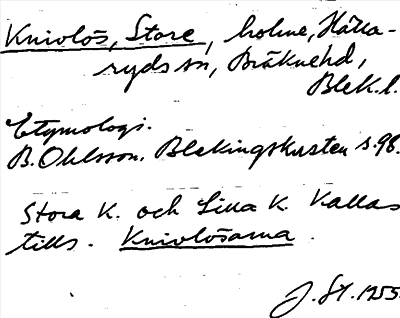 Knivlös, Store, holme, Hälla-
ryds sn, Bräknehd,
Blek.l.
Etymologi.
B. Ohlsson, Blekingskusten s.98.
Stora K. och Lilla K. Kallas
tills. Knivlösarna.
J. St. 1955.